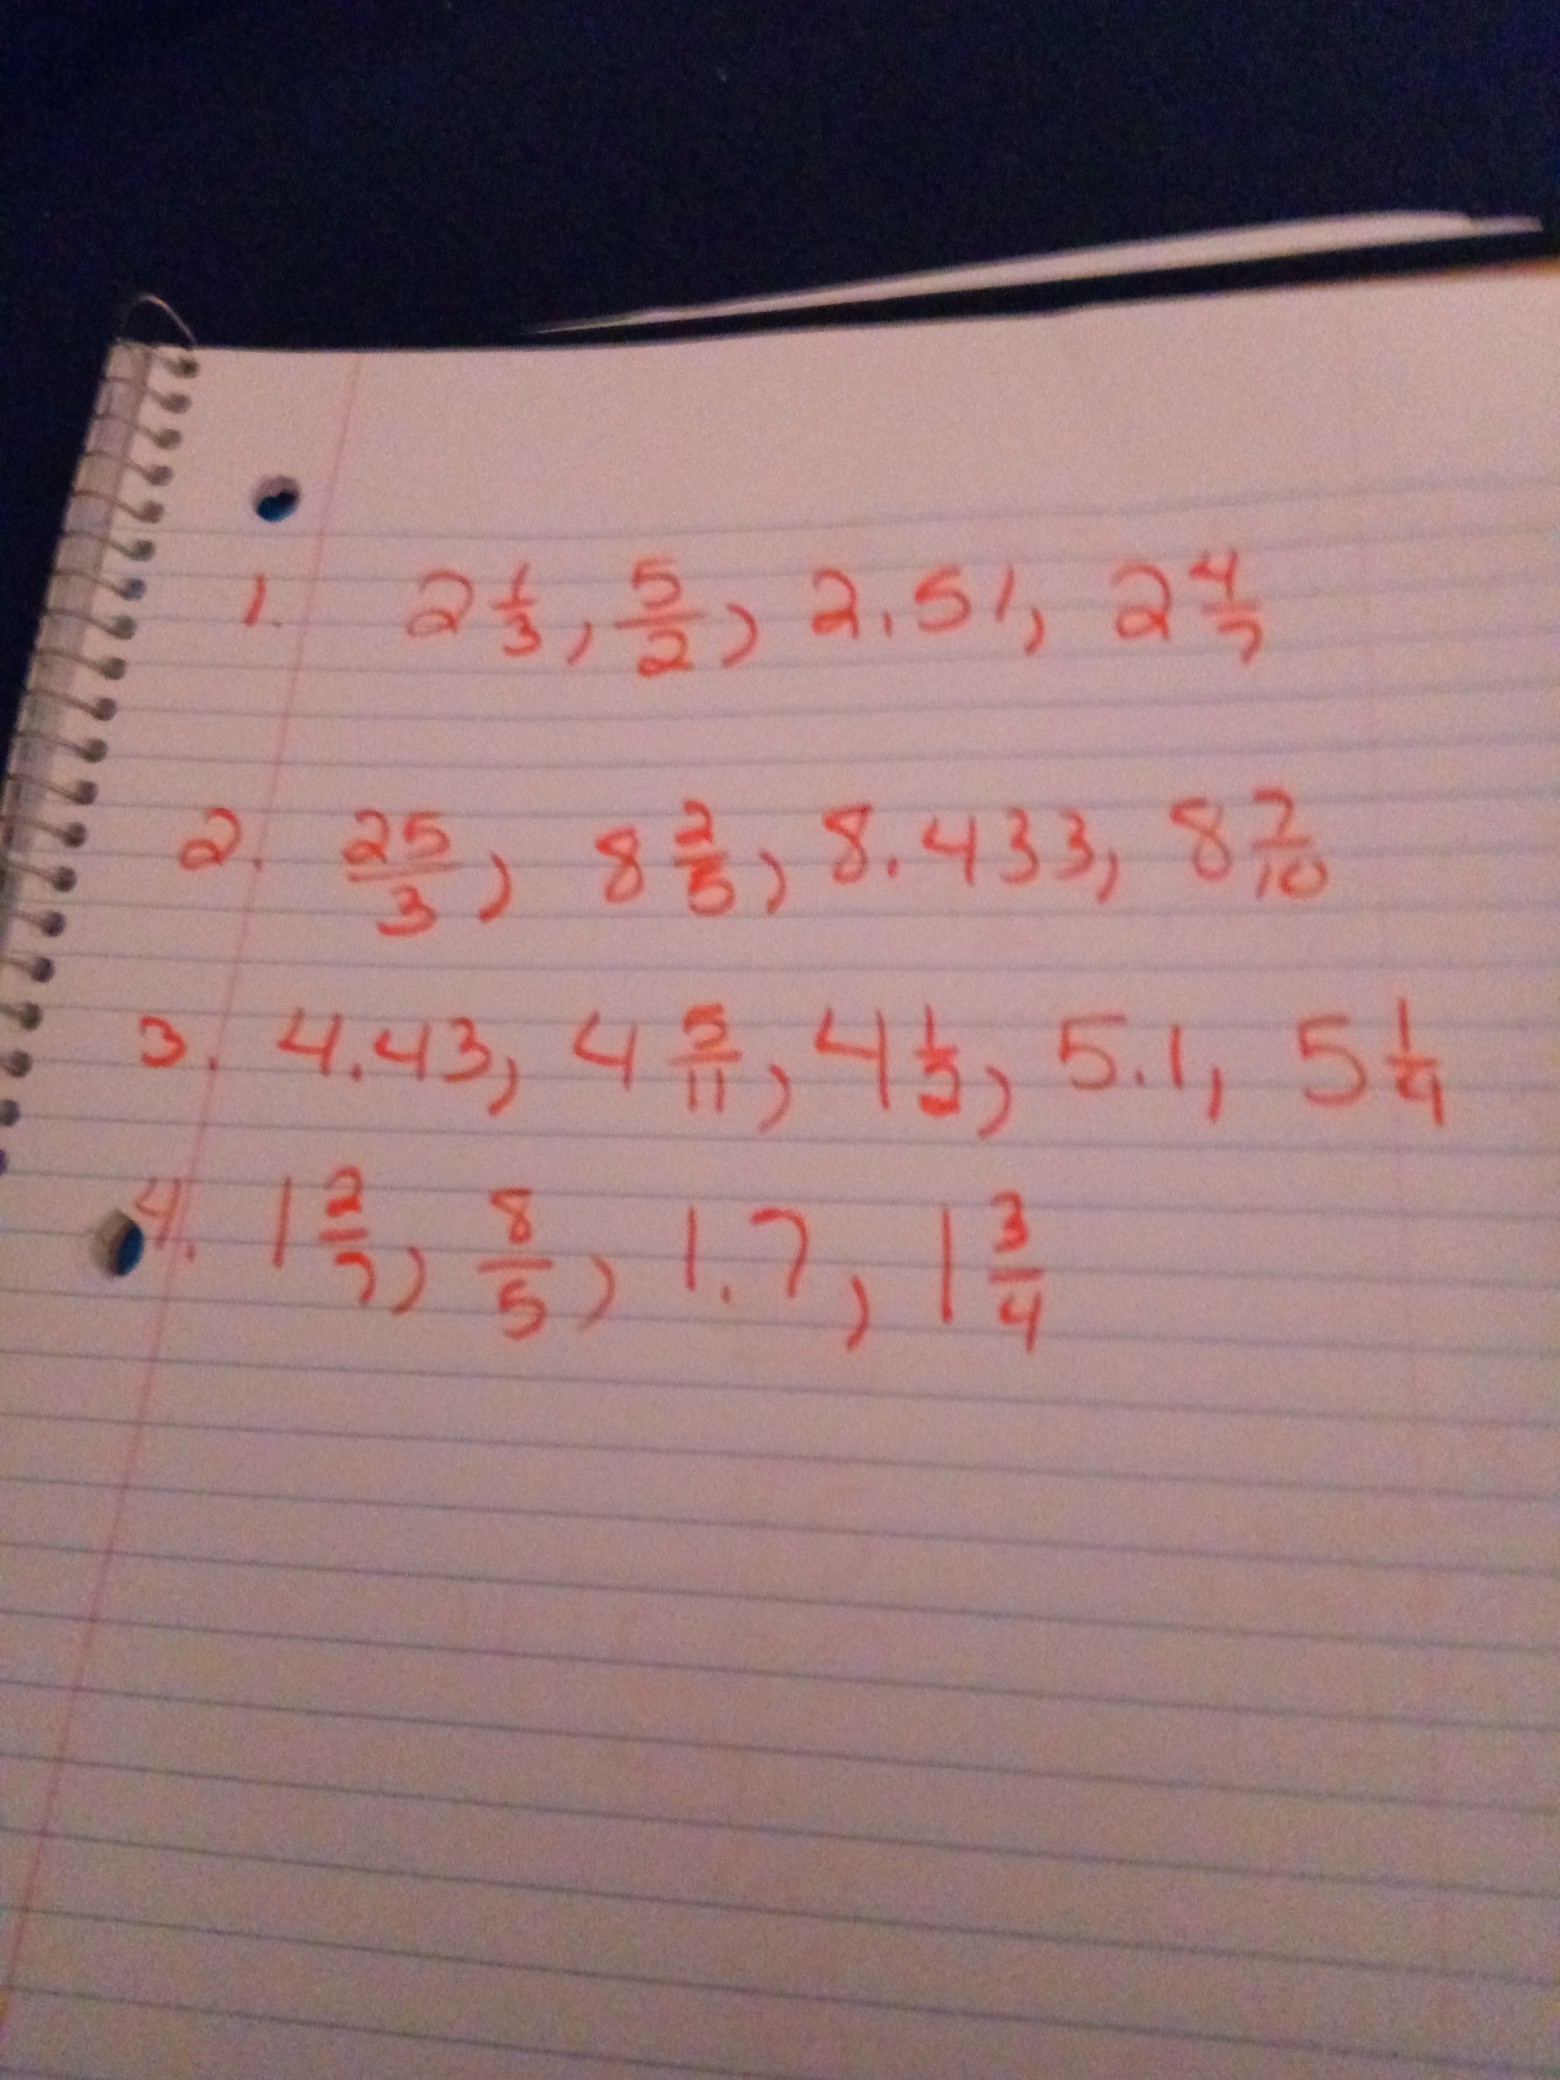 1. 2 1/3, 5/2, 2.51, 2 4/7
2. 25/3, 8 2/5, 8.433, 8 7/10
3. 4.43, 4 5/11, 4 1/2, 5.1, 5 1/4
4. 1 2/7, 8/5, 1.7, 1 3/4